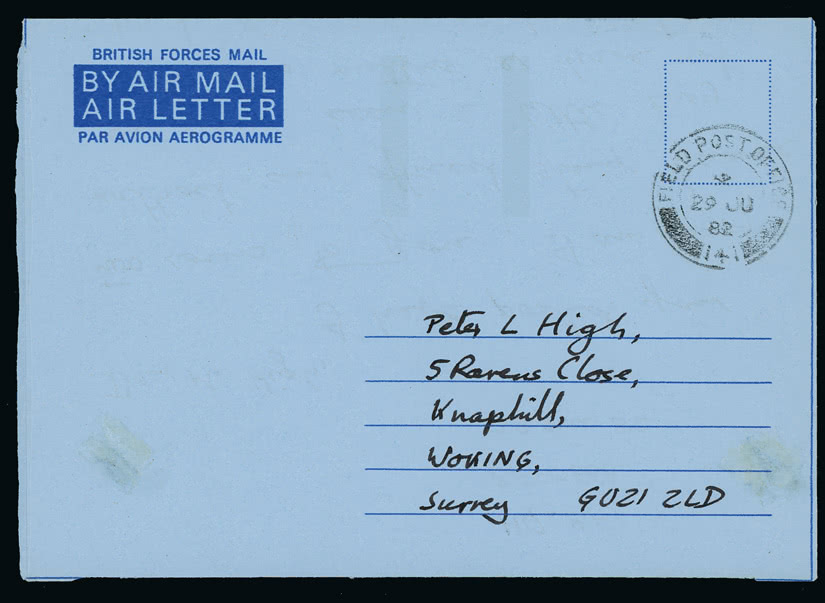 BRITISH FORCES MAIL
BY AIR MAIL
AIR LETTER
PAR AVION AEROGRAMME
FIELD POST OFFICE
29 JU
82
141
Peter L High,
5 Ravens Close,
Knaphill,
WOKING,
Surrey GU21 2LD